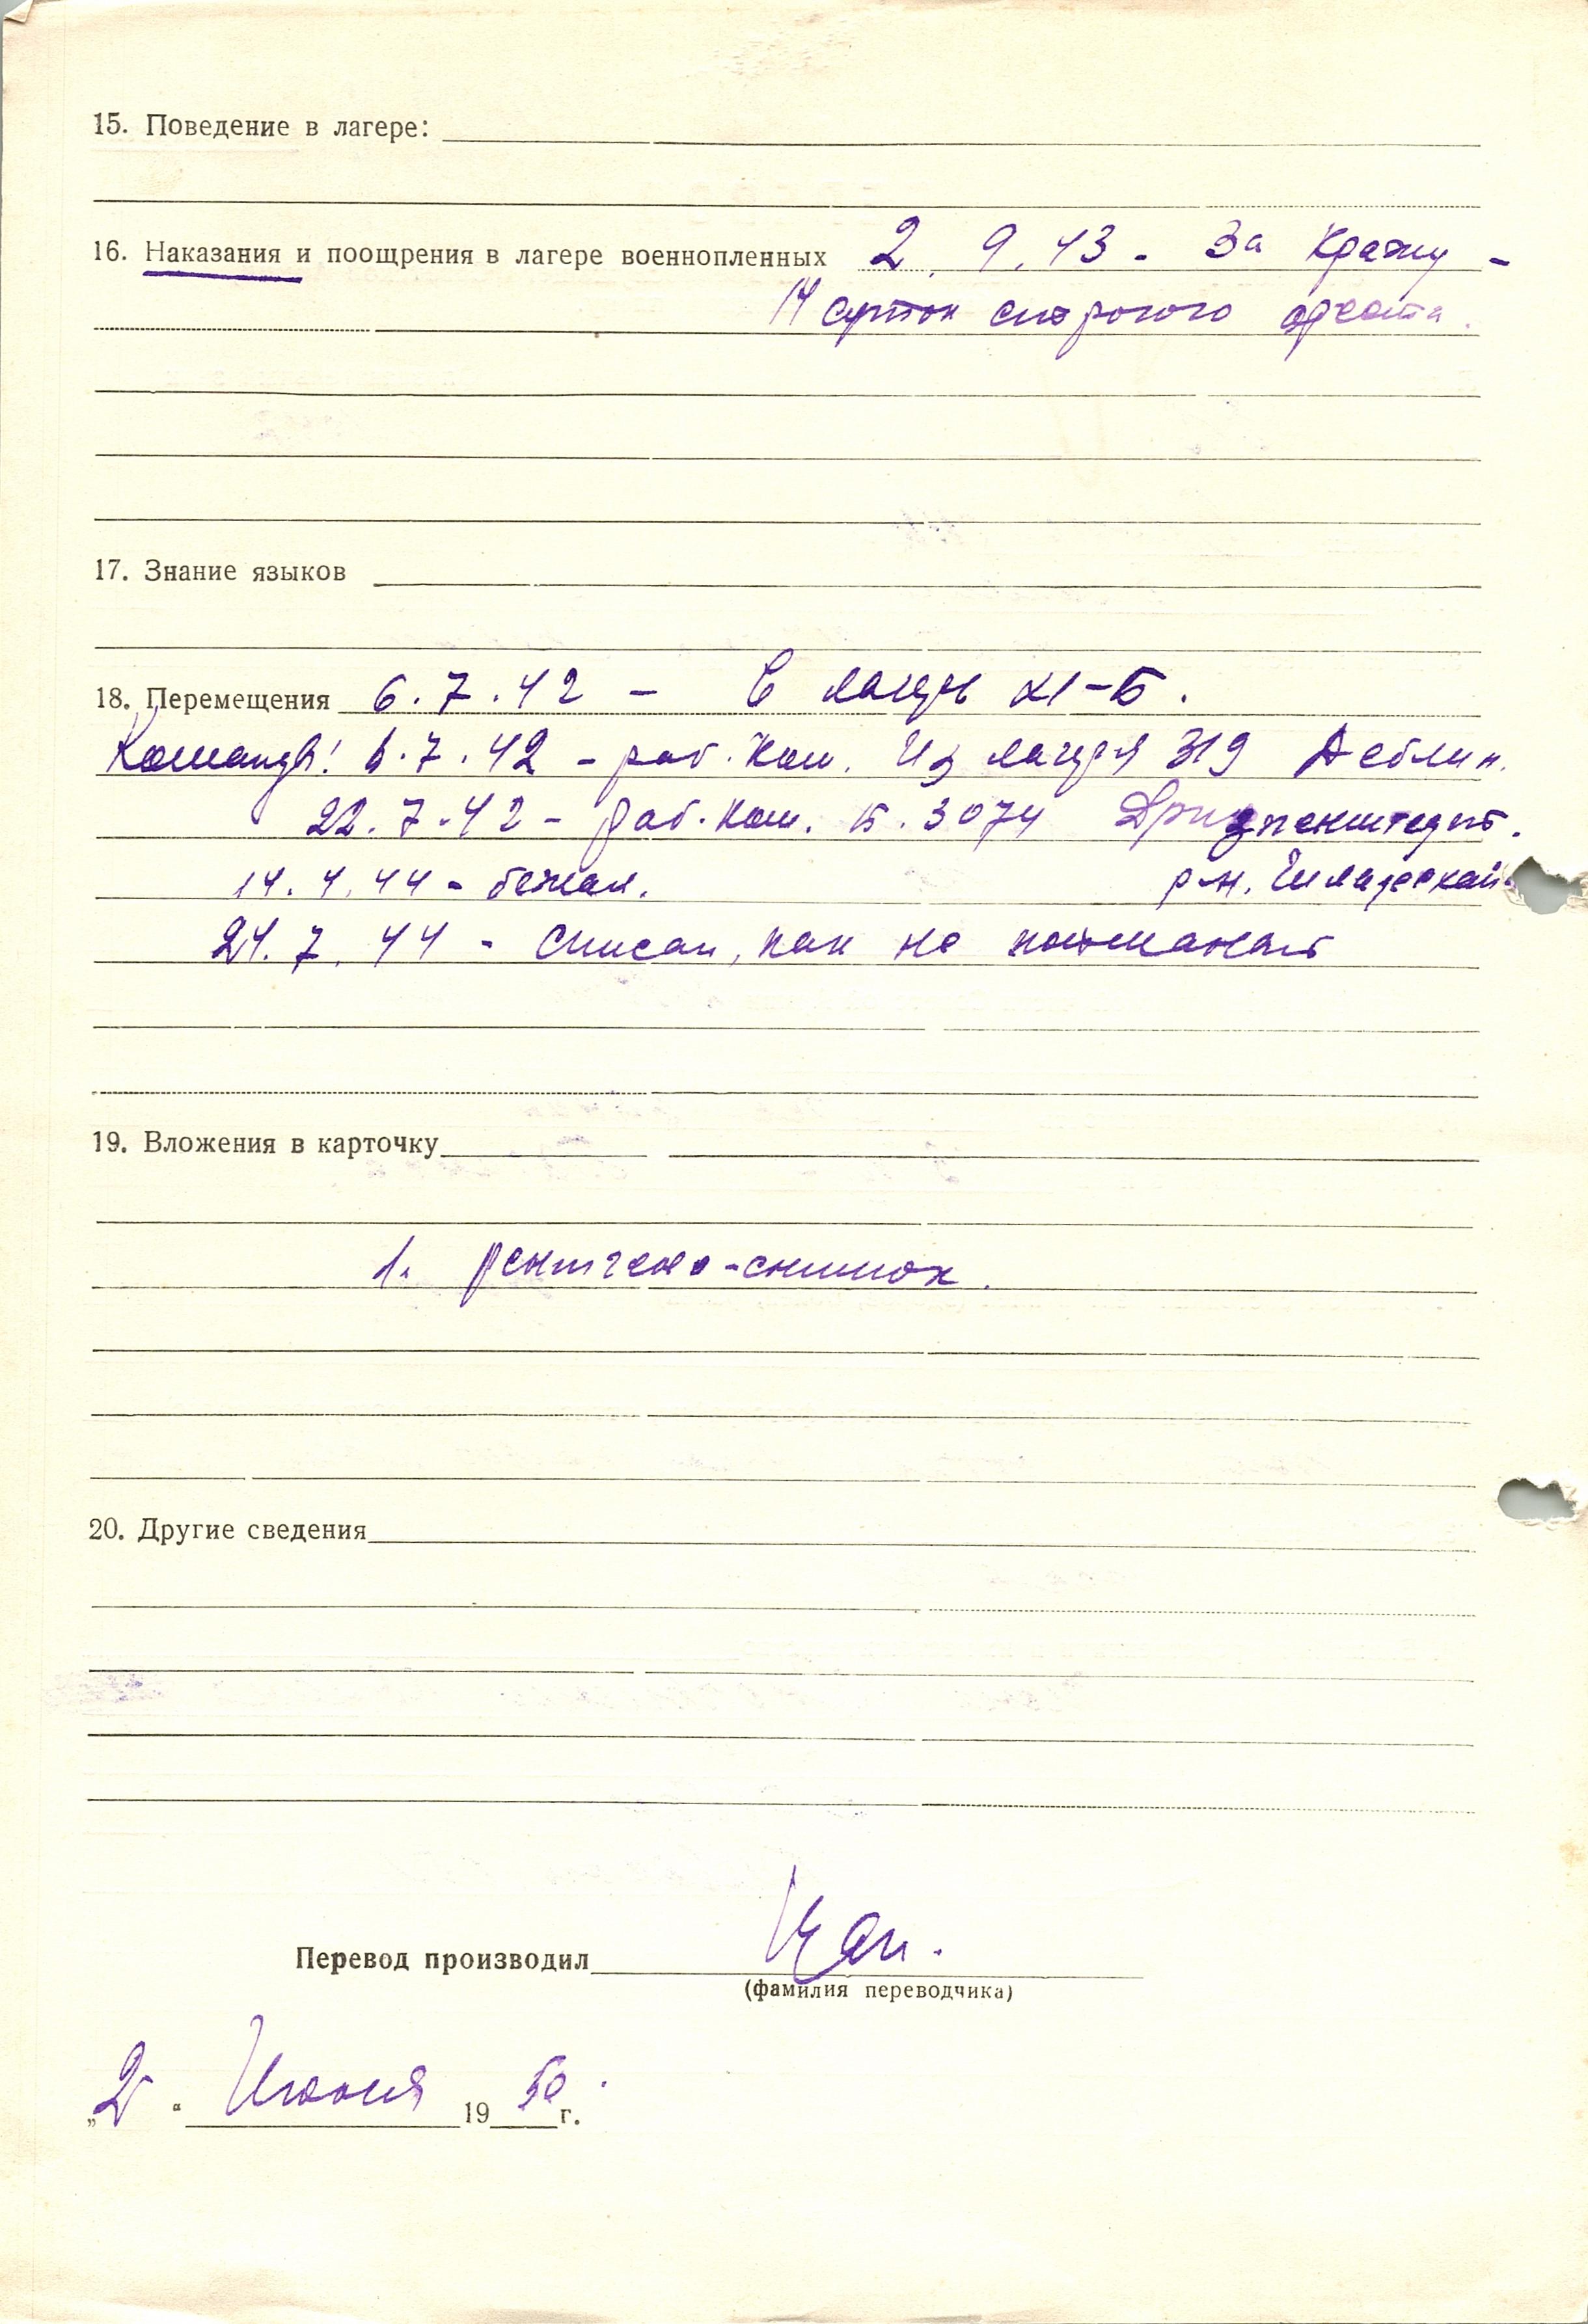 15. Поведение в лагере:
16. Наказания и поощрения в лагере военнопленных 2. 9. 43. - За кражу -
14 суток строгого ареста.
17. Знание языков
18. Перемещения 6.7.42 - В лагерь XI-Б.
Команды! 6.7.42 - раб. ком. Из лагеря 319 Деблин.
22.7.42 - раб. ком. Б. 3074
14.4.44 - бежал. р-н.
24.7.44 - списан, как не пойманный
19. Вложения в карточку
1. рентгено-снимок.
20. Другие сведения
Перевод производил
(фамилия переводчика)
" Июня 1950 г.